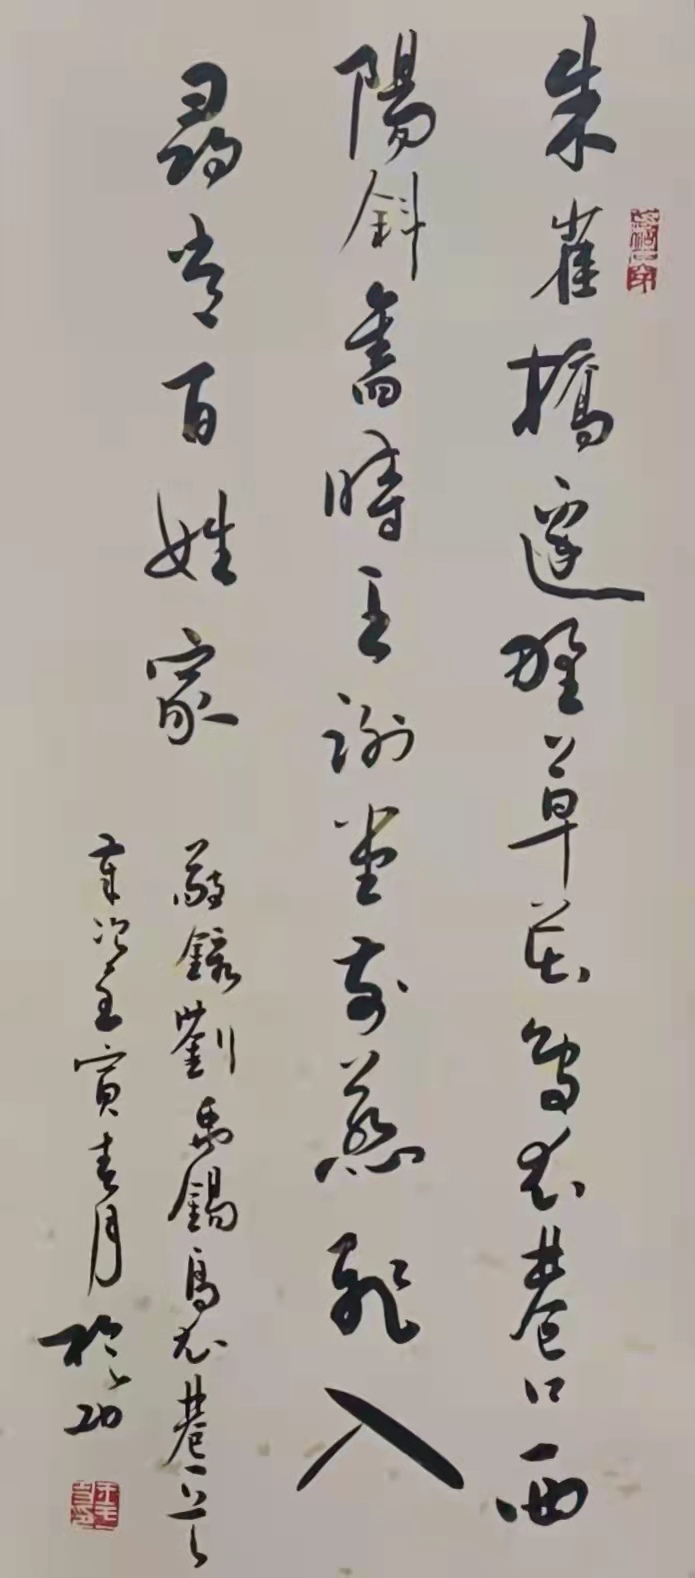 朱雀橋邊野草花烏衣巷口西
陽斜舊時王謝堂前燕飛入
尋常百姓家
敬錄劉禹錫烏衣巷一首
歲次壬寅春月